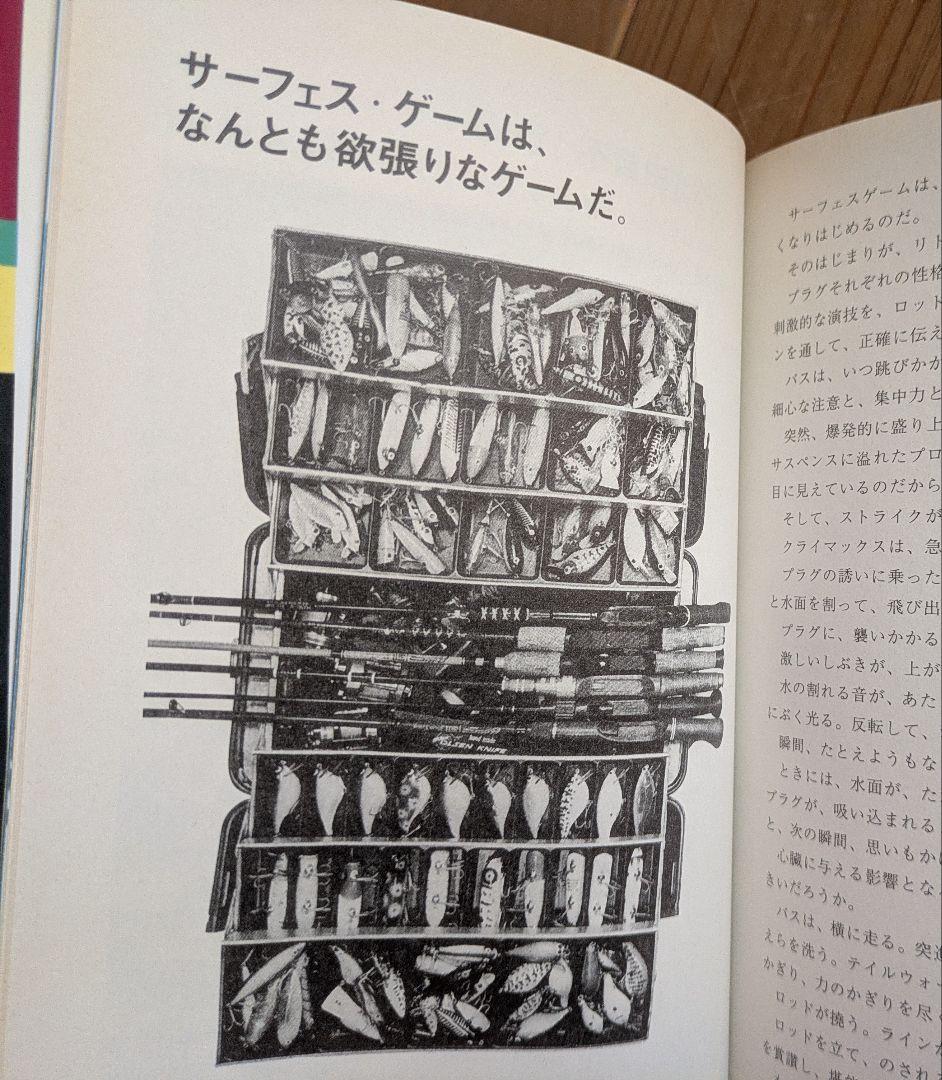 サーフェス・ゲームは、
なんとも欲張りなゲームだ。
OLSEN KNIFE
サーフェスゲームは、
くなりはじめるのだ。
そのはじまりが、リト
プラグそれぞれの性格
刺激的な演技を、ロット
ンを通して、正確に伝え
バスは、いつ跳びかか
細心な注意と、集中力と
突然、爆発的に盛り上
サスペンスに溢れたプロ
目に見えているのだから
そして、ストライクが
クライマックスは、急
プラグの誘いに乗った
と水面を割って、飛び出
プラグに、襲いかかる
激しいしぶきが、上が
水の割れる音が、あた
にぶく光る。反転して、
瞬間、たとえようもな
ときには、水面が、た
プラグが、吸い込まれる
と、次の瞬間、思いもかけ
心臓に与える影響とな
きいだろうか。
バスは、横に走る。突進
えらを洗う。テイルウォ
かぎり、力のかぎりを尽く
ロッドが撓う。ラインが
ロッドを立て、のされ
を賞讃し、